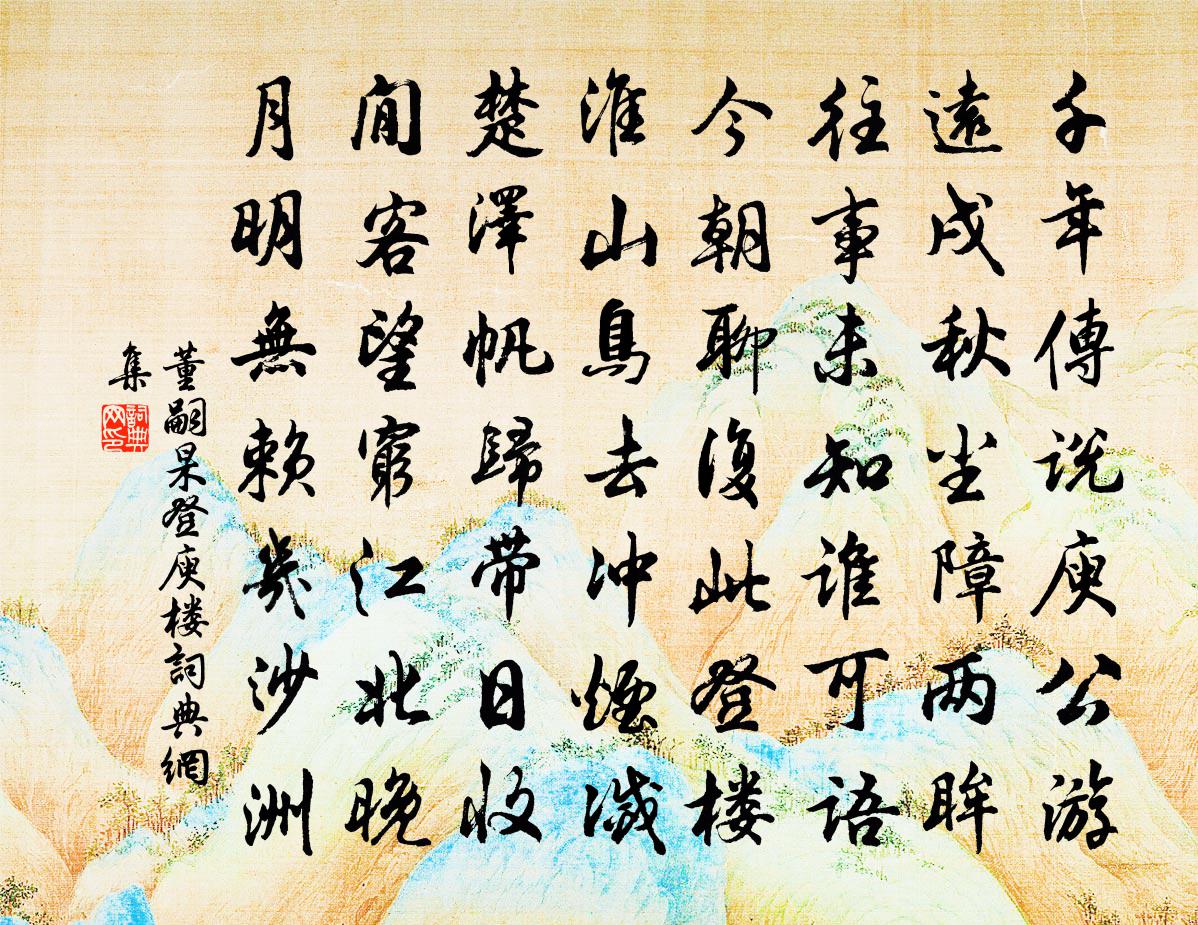 千年傳说庾公游
遠戍秋尘障两眸
往事未知谁可语
今朝聊復此登楼
淮山鳥去冲煙滅
楚澤帆歸带日收
閒客望窮江北晚
月明無赖美沙洲
董嗣杲登庾楼詞典網
集
詞典网印